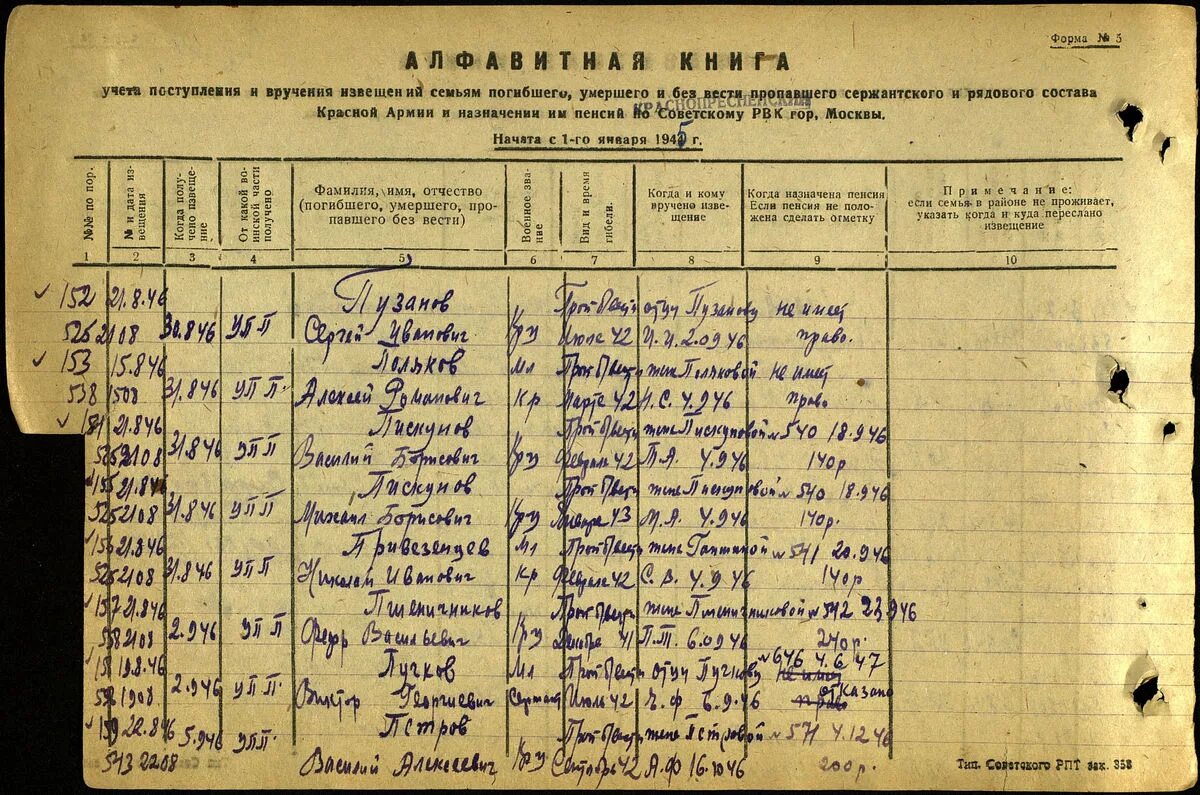 Форма № 5
АЛФАВИТНАЯ КНИГА
учета поступления и вручения извещений семьям погибшего, умершего и без вести пропавшего сержантского и рядового состава
КРАСНОПРЕСНЕНСКИЙ
Красной Армии и назначении им пенсий по Советскому РВК гор, Москвы.
Начата с 1-го января 1945 г.
№№ по пор. № и дата извещения Когда получено извещение От какой воинской части получено Фамилия, имя, отчество (погибшего, умершего, пропавшего без вести) Военное звание Вид и время гибели. Когда и кому вручено извещение Когда назначена пенсия Если пенсия не положена сделать отметку Примечание: если семья в районе не проживает, указать когда и куда переслано извещение
1 2 3 4 5 6 7 8 9 10
152 21.8.46 Пузанов Проп Вести отцу Пузанову не имеет
525 2108 30.8.46 УПП Сергей Иванович Кр Июле 42 И.И. 2.09.46 право.
153 15.8.46 Поляков Мл Проп Вести жене Поляковой не имеет
538 1508 31.8.46 УПП Алексей Романович Кр Марте 42 4.9.46 право
154 21.8.46 Пискунов Проп Вести жене Пискуновой № 540 18.9.46
525 2108 31.8.46 УПП Василий Борисович Кр Феврале 42 П.А. 4.9.46 140р.
155 21.8.46 Пискунов Проп Вести жене Пискуновой № 540 18.9.46
525 2108 31.8.46 УПП Михаил Борисович Кр Января 43 М.А. 4.9.46 140р.
156 21.8.46 Привезенцев Мл Проп Вести жене № 541 20.9.46
525 2108 31.8.46 УПП Николай Иванович Кр Феврале 42 С.В. 4.9.46 140р
157 21.8.46 Пшеничников Проп Вести жене Пшеничниковой № 542 23.9.46
2108 2.9.46 УПП Федор Васильевич Кр 41 П.Т. 6.09.46 240р.
158 19.8.46 Пучков Мл Проп Вести отцу Пучкову № 646 4.6.47 не имеет
1908 2.9.46 УПП Виктор Георгиевич Сержант Июле 42 Г.Ф 6.9.46 право отказано
159 22.8.46 Петров Проп Вести жене Петровой № 571 4.12.46
543 2208 5.9.46 УПП Василий Алексеевич Кр Сентябрь 42 А.Ф 16.10.46 200р.
Тип. Советского РПТ зак. 358